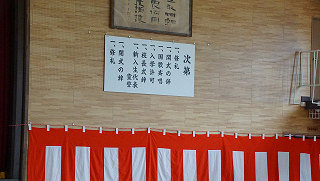 次第
一、敬礼
一、開式の辞
一、国歌斉唱
一、入学許可
一、校長式辞
一、新入生代表宣誓
一、閉式の辞
一、敬礼